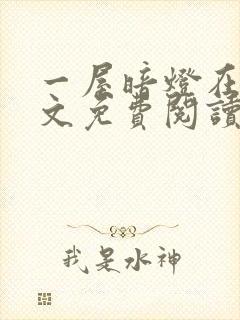 一屋暗燈在
文免費閱讀
我是水神